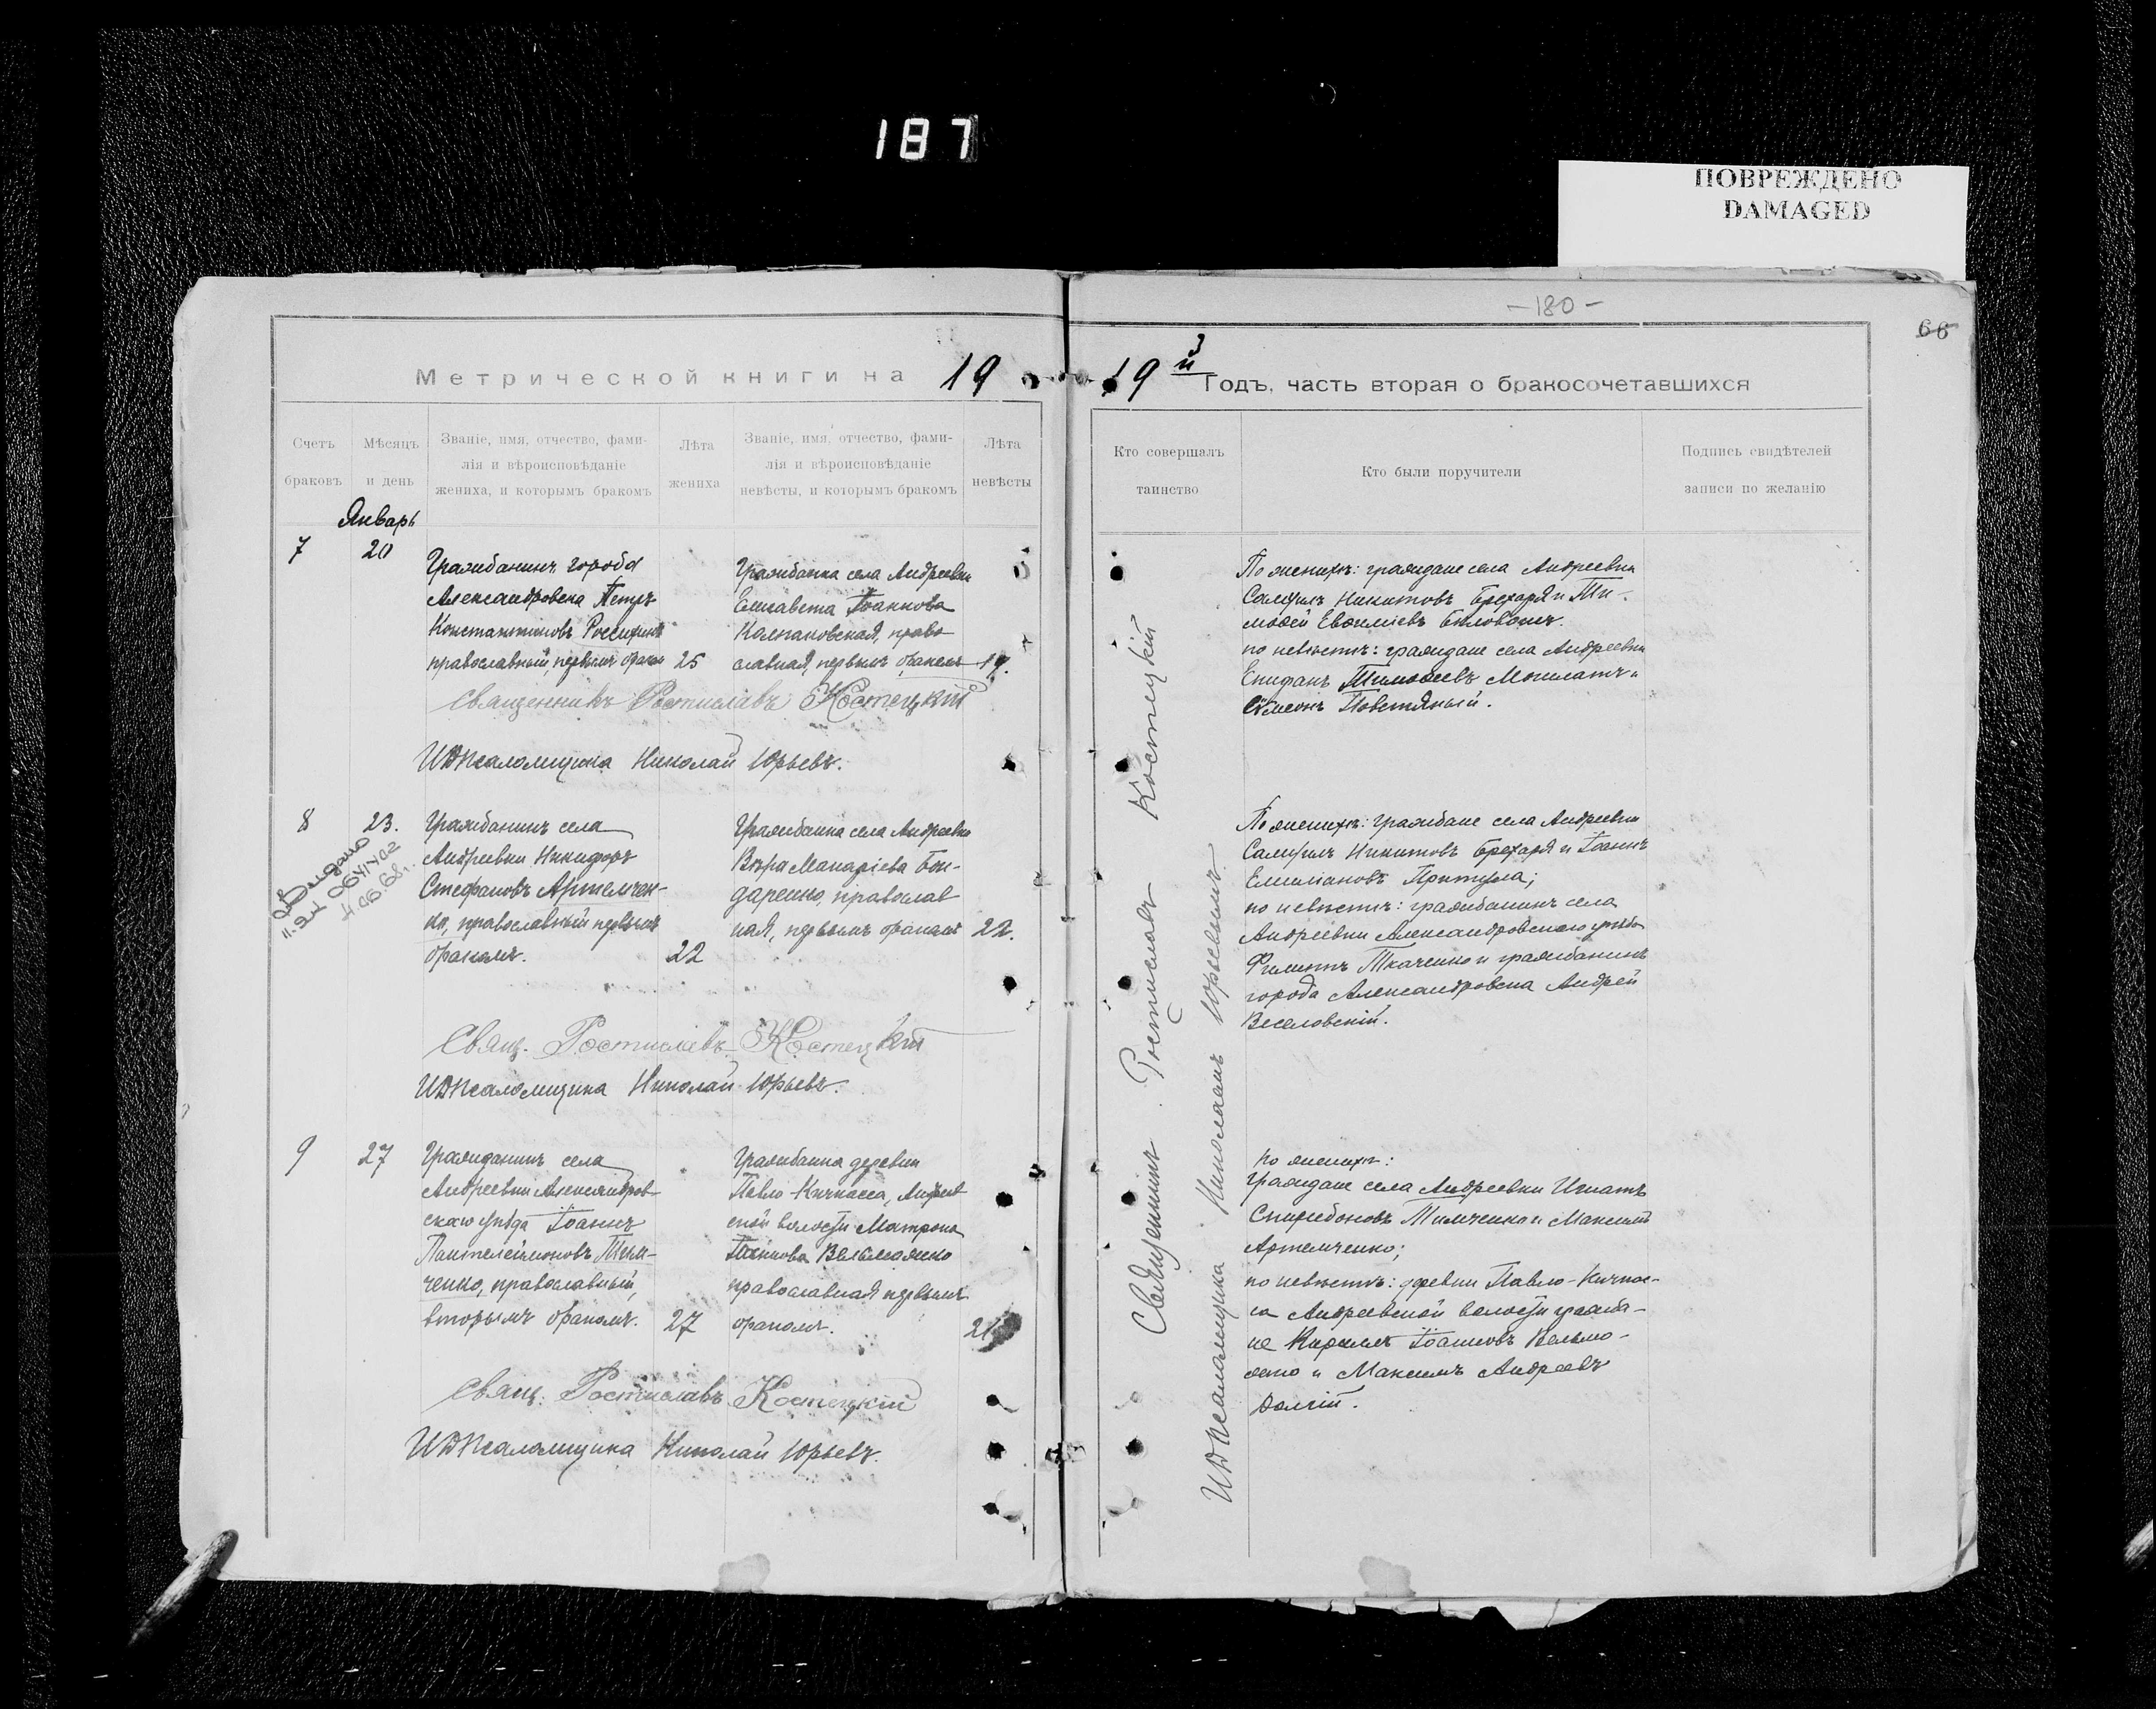 187
ПОВРЕЖДЕНО
DAMAGED
-180-
66
Метрической книги на 19
19 й Годъ, часть вторая о бракосочетавшихся
Счетъ браковъ
Мѣсяцъ и день
Званіе, имя, отчество, фами-
лія и вѣроисповѣданіе
жениха, и которымъ бракомъ
Лѣта жениха
Званіе, имя, отчество, фами-
лія и вѣроисповѣданіе
невѣсты, и которымъ бракомъ
Лѣта невѣсты
Кто совершалъ таинство
Кто были поручители
Подпись свидѣтелей
записи по желанію
Январь
7
20
Гражданинъ города
Александровска Петръ
Константиновъ
православный, первымъ бракомъ
25
Гражданка села Андреевки
Елисавета Іоаннова
Колпаковская, право-
славная, первымъ бракомъ
19.
По женихѣ: граждане села Андреевки
Никитовъ Брехаря и Ти-
моѳей Евѳиміевъ
по невѣстѣ: граждане села Андреевки
Епифанъ Тимоѳеевъ и
Сѵмеонъ
Священникъ Ростиславъ Костецкій
ИД Псаломщика Николай Юрьевъ.
8
23.
Выдано
Гражданинъ села
Андреевки Никифоръ
Стефановъ Артемчен-
ко, православный первымъ
бракомъ.
22
Гражданка села Андреевки
Вѣра Макаріева Бон-
даренко, православ
ная, первымъ бракомъ
22.
По женихѣ: граждане села Андреевки
Никитовъ Брехаря и Іоаннъ
Емиліановъ Притула;
по невѣстѣ: гражданинъ села
Андреевки Александровского уѣзда
Филиппъ Ткаченко и гражданинъ
города Александровска Андрей
Веселовскій.
Свящ. Ростиславъ Костецкій
ИД Псаломщика Николай Юрьевъ.
9
27
Гражданинъ села
Андреевки Александров-
скаго уѣзда Іоаннъ
Пантелеймоновъ Тим-
ченко, православный,
вторымъ бракомъ.
27
Гражданка деревни
Павло-Кичкасса, Андреев
ской волости Матрона
Іоаннова
православная первымъ
бракомъ.
21
по женихѣ:
Граждане села Андреевки Игнатъ
Спиридоновъ Тимченко и Максимъ
Артемченко;
по невѣстѣ: деревни Павло-Кичкас-
са Андреевской волости гражда-
не Кириллъ Іоанновъ
и Максимъ Андреевъ
Долгій.
Свящ. Ростиславъ Костецкій
ИД Псаломщика Николай Юрьевъ.
Священникъ Ростиславъ Костецкій
ИД Псаломщика Николаемъ Юрьевымъ